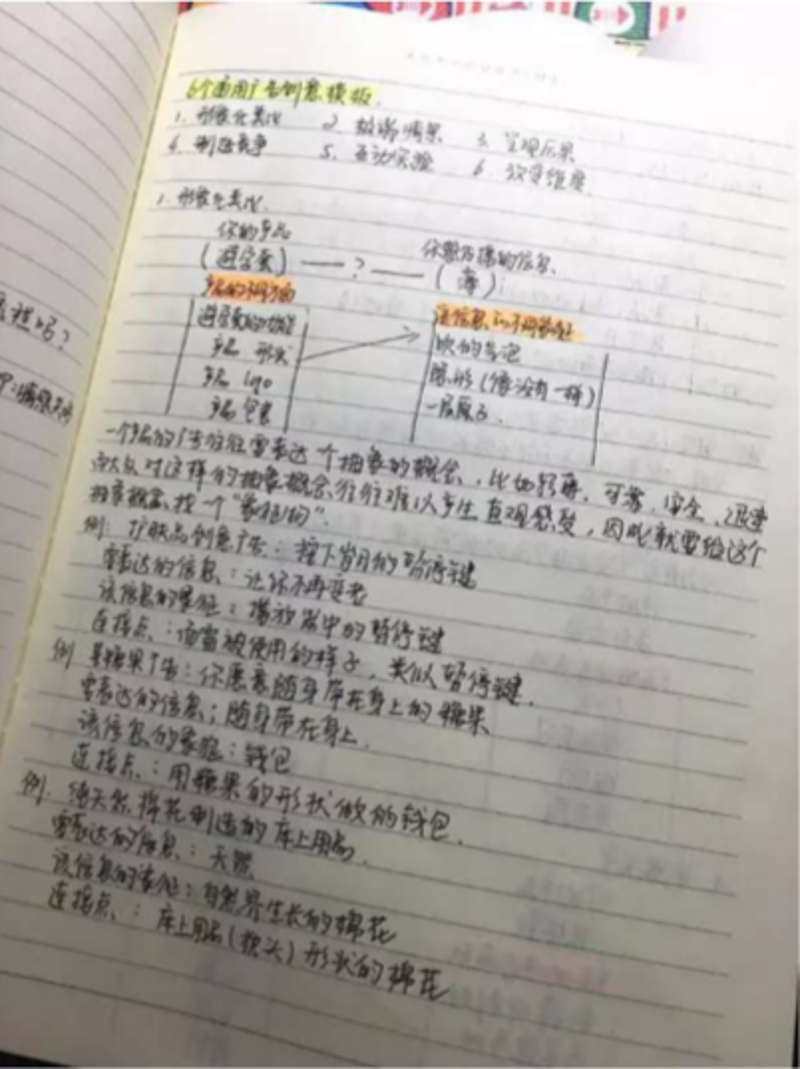 6个通用广告创意模板.
1. 形象化类比 2. 极端情景 3. 呈现后果
4. 制造竞争 5. 互动实验 6. 改变维度
1. 形象化类比.
你的产品 你想传播的信息
(避孕套) —— ? —— (薄)
产品的不同方面 该信息的不同象征
避孕套的功能 吹的
产品 形状 隐形(像没有一样)
产品 logo 一层原子.
产品 包装
一个产品的广告往往要表达一个抽象的概念,比如轻薄,可靠,安全,迅速
而大众对这样的抽象概念往往难以产生直观感受,因此就要给这个
抽象概念找一个"象征物".
例: 护肤品创意广告:按下岁月的暂停键
要表达的信息:让你不再变老
该信息的象征:播放器中的暂停键
连接点:面霜被使用的样子,类似暂停键.
例 某糖果广告:你愿意随身带在身上的糖果
要表达的信息:随身带在身上.
该信息的象征:钱包
连接点:用糖果的形状做的钱包.
例: 纯天然棉花制造的床上用品.
要表达的信息:天然
该信息的象征:自然界生长的棉花
连接点:床上用品(枕头)形状的棉花